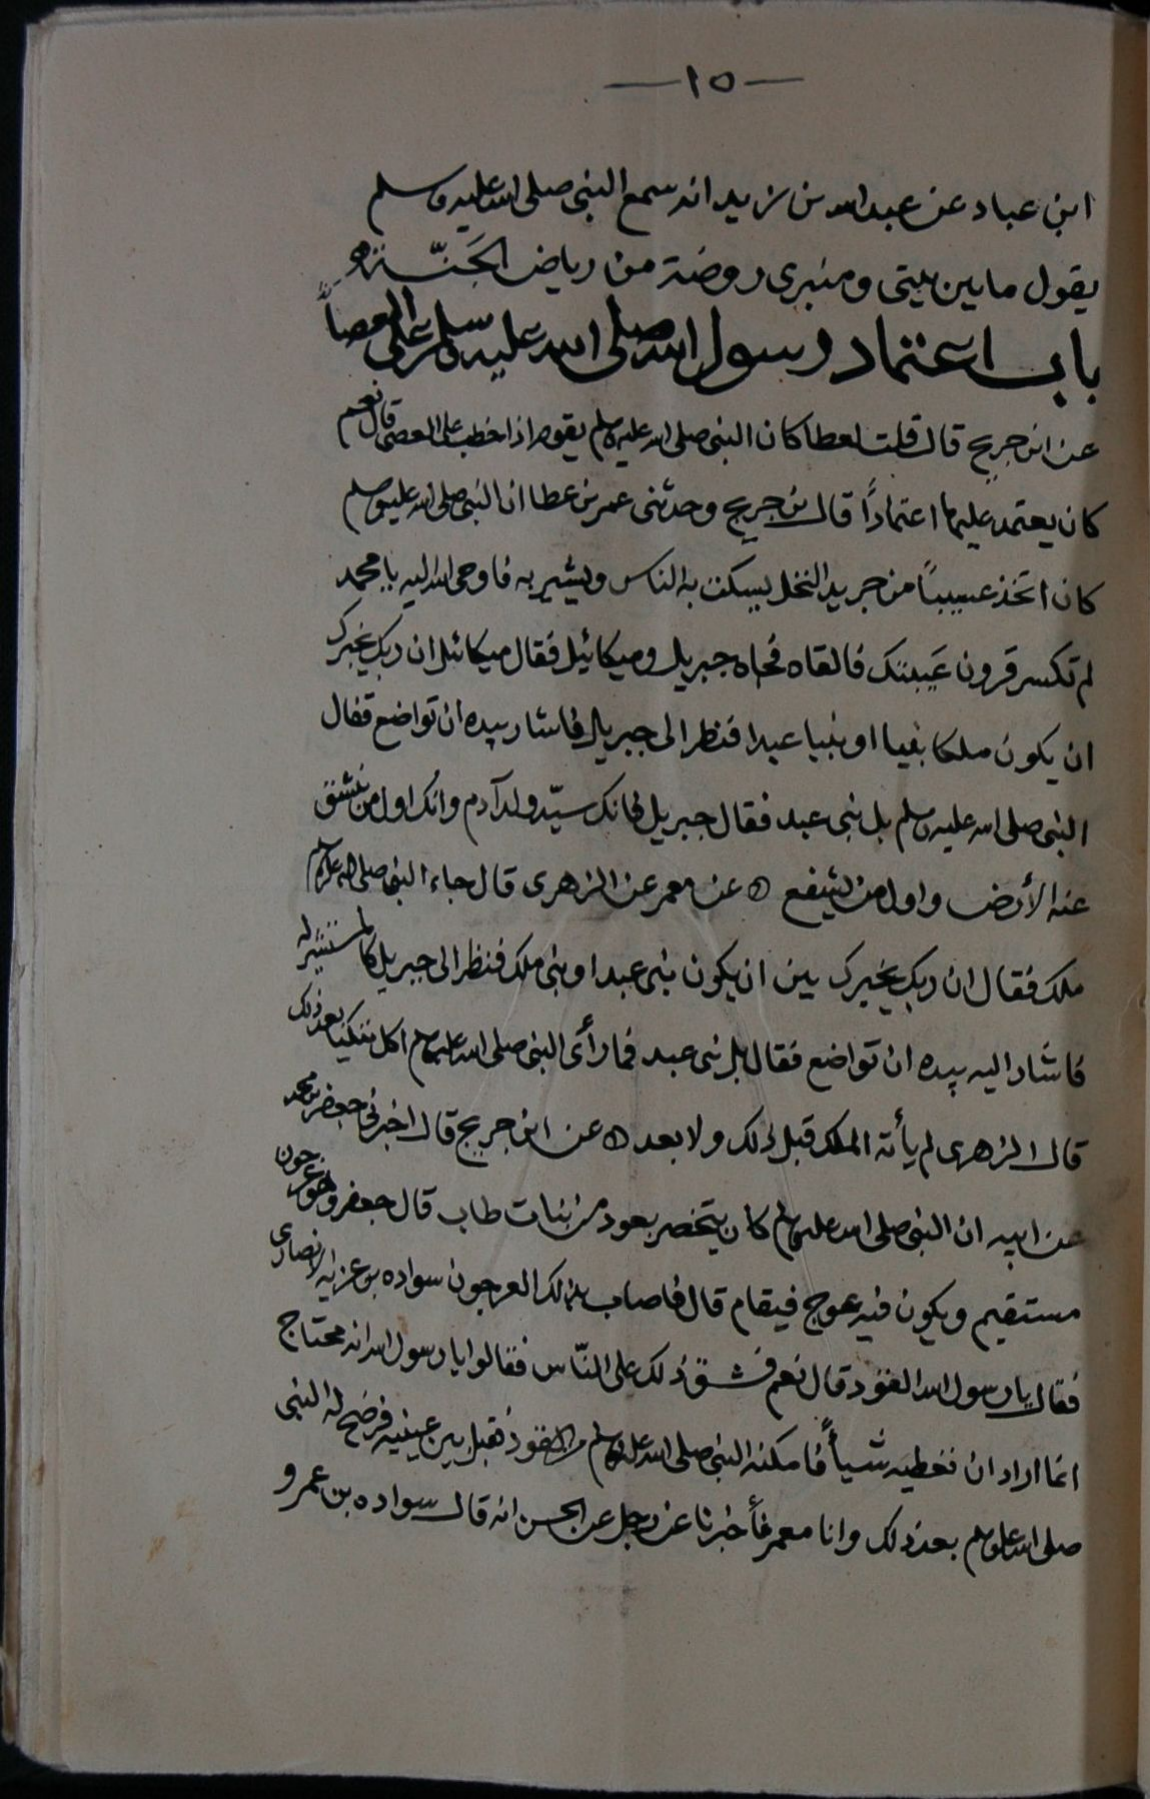 —١٥—
ابن عباد عن عبد الله بن زيد انه سمع النبى صلى الله عليه وسلم
يقول ما بين بيتى ومنبرى روضة من رياض الجَنّة
باب اعتماد رسول الله صلى الله عليه وسلم على العصا
عن ابن جريج قال قلت لعطا كان النبى صلى الله عليه وسلم يقوم اذا خطب على العصى قال نعم
كان يعتمد عليها اعتماداً قال بن جريج وحدثنى عمر بن عطا ان النبى صلى الله عليه وسلم
كان اتخذ عسيباً من جريد النخل يسكت به الناس ويشير به فاوحى الله اليه يا محمد
لم تكسر قرون فالقاه فجاه جبريل وميكائيل فقال ميكائيل ان ربك يخيرك
ان يكون ملكا نبيا او نبيا عبدا فنظر الى جبريل فاشار بيده ان تواضع فقال
النبى صلى الله عليه وسلم بل نبى عبد فقال جبريل فانك سيّد ولد آدم وانك اول من تنشق
عنه الأرض واول من يشفع ۞ عن معمر عن الزهرى قال جاء النبى صلى الله عليه وسلم
ملك فقال ان ربك يخيرك بين ان يكون نبى عبدا او نبى ملك فنظر الى جبريل كالمستشير له
فاشار اليه بيده ان تواضع فقال بل نبى عبد فما رأى النبى صلى الله عليه وسلم اكل متكيا بعد ذلك
قال الزهرى لم يأته الملك قبل ذلك ولا بعد ۞ عن ابن جريج قال اخبرنى جعفر بن محمد
عن ابيه ان النبى صلى الله عليه وسلم كان يتخصر بعود من بنات طاب قال جعفر وهو عرجون
مستقيم ويكون فيه عوج فيقام قال فاصاب بذلك العرجون سواده بن غزيه الانصارى
فقال يا رسول الله القود قال نعم فشق ذلك على النّاس فقالوا يا رسول الله انه محتاج
انما اراد ان تعطيه شيأً فامكنه النبى صلى الله عليه وسلم من القود فقبل بين عينيه فرضخ له النبى
صلى الله عليه وسلم بعد ذلك وانا معمر فأخبرنا عن رجل عن الحسن انه قال سواده بن عمرو